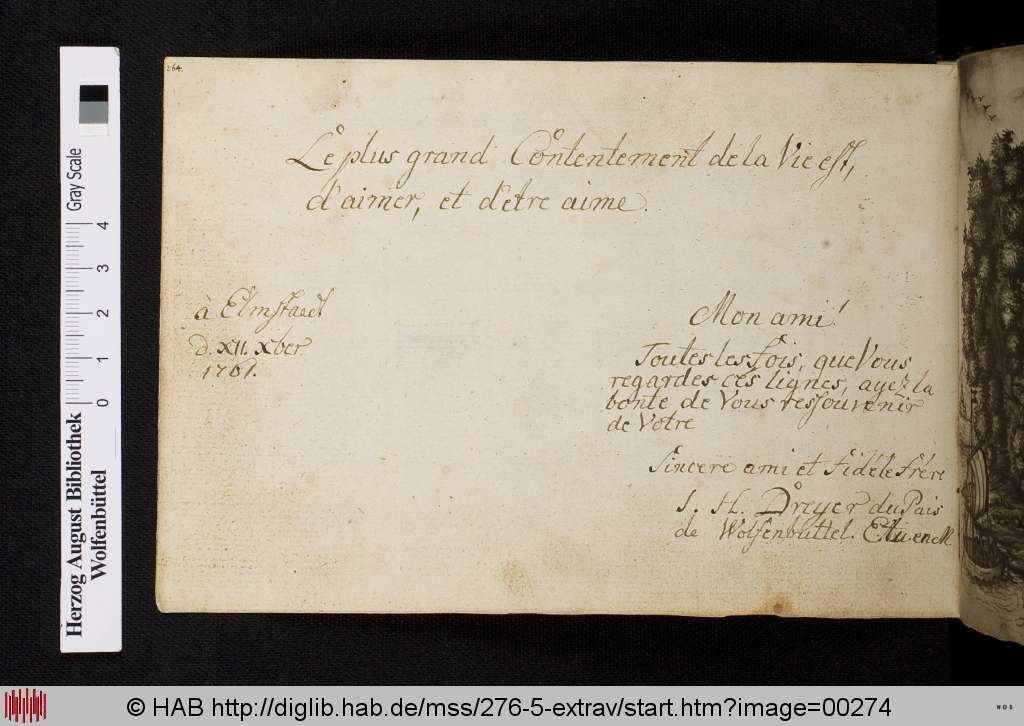 264.
Le plus grand Contentement de la Vie est,
d'aimer, et d'etre aime.
à Elmstaedt
d. XII. Xber.
1761.
Mon ami!
Toutes les fois, que Vous
regardes ces lignes, ayez la
bonte de Vous ressouvenir
de Votre
Sincere ami et fidéle frére
J. H. Dreyer du Pais
de Wolfenbüttel. Etu. en M.
Herzog August Bibliothek
Wolfenbüttel
Gray Scale
0 1 2 3 4
© HAB http://diglib.hab.de/mss/276-5-extrav/start.htm?image=00274
WDB